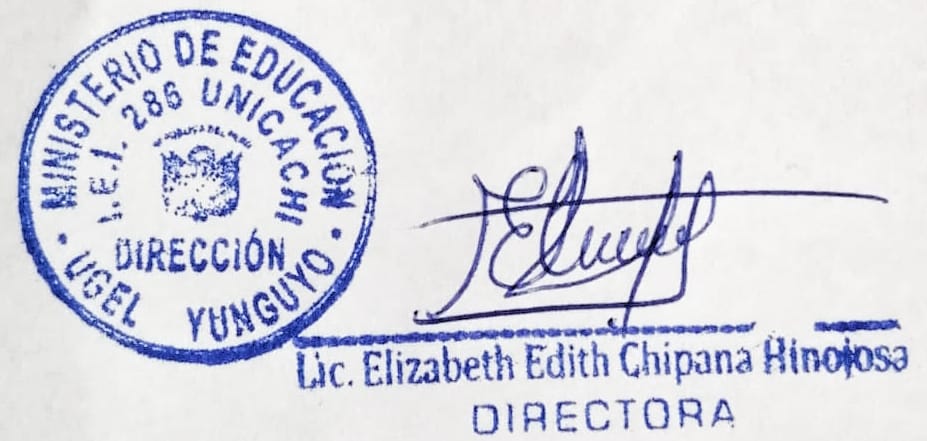 MINISTERIO DE EDUCACIÓN
I.E.I. 286 UNICACHI
DIRECCIÓN
• UGEL YUNGUYO •
Lic. Elizabeth Edith Chipana Hinojosa
DIRECTORA